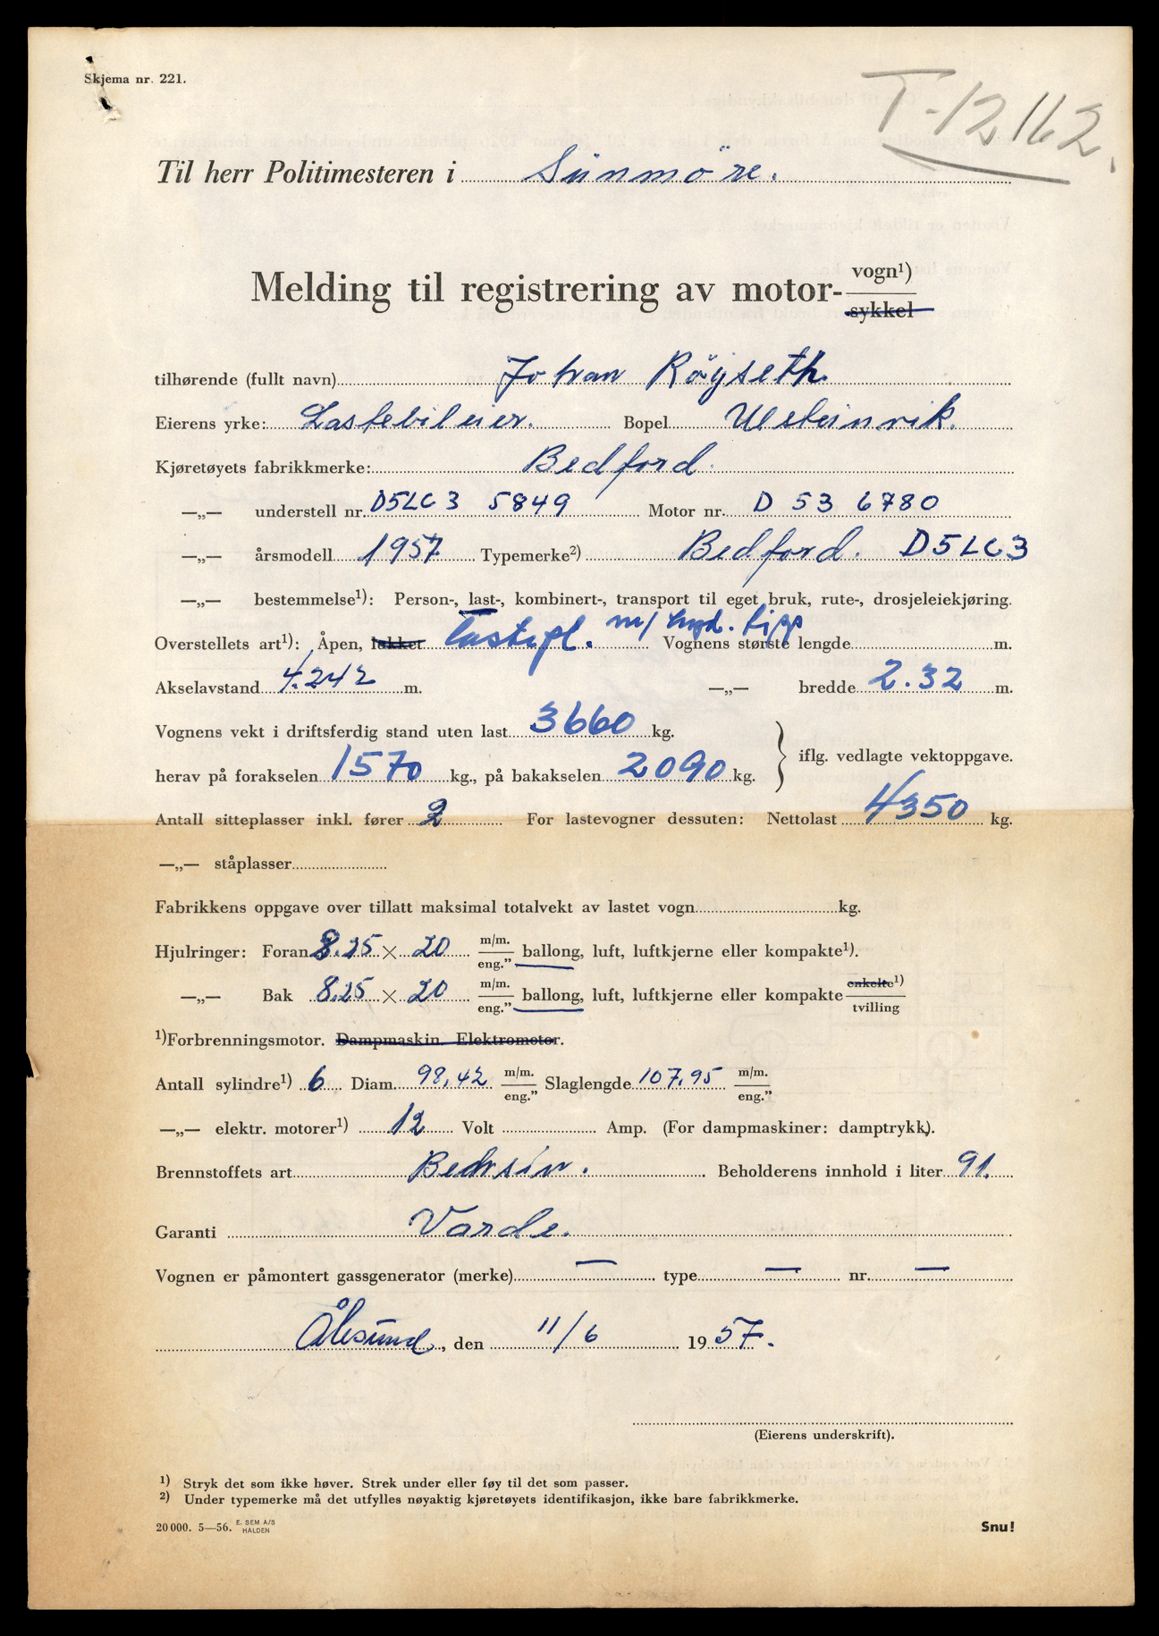 Skjema nr. 221.
T-12162.
Til herr Politimesteren i Sunmöre.
Melding til registrering av motor-vogn¹)
sykkel
tilhørende (fullt navn) Johan Röyseth
Eierens yrke: Lastebileier. Bopel Ulsteinvik.
Kjøretøyets fabrikkmerke: Bedford.
—„— understell nr. D5LC3 5849 Motor nr. D 53 6780
—„— årsmodell 1957 Typemerke²) Bedford. D5LC3
—„— bestemmelse¹): Person-, last-, kombinert-, transport til eget bruk, rute-, drosjeleiekjøring.
Overstellets art¹): Åpen, lukket Lastepl. m/ hyd. tipp Vognens største lengde m.
Akselavstand 4.242 m. —„— bredde 2.32 m.
Vognens vekt i driftsferdig stand uten last 3660 kg.
herav på forakselen 1570 kg., på bakakselen 2090 kg. } iflg. vedlagte vektoppgave.
Antall sitteplasser inkl. fører 2 For lastevogner dessuten: Nettolast 4350 kg.
—„— ståplasser
Fabrikkens oppgave over tillatt maksimal totalvekt av lastet vogn kg.
Hjulringer: Foran 8.25 × 20 m/m. eng." ballong, luft, luftkjerne eller kompakte¹).
—„— Bak 8.25 × 20 m/m. eng." ballong, luft, luftkjerne eller kompakte enkelte¹) tvilling
¹)Forbrenningsmotor. Dampmaskin. Elektromotor.
Antall sylindre¹) 6 Diam. 98,42 m/m. eng." Slaglengde 107,95 m/m. eng."
—„— elektr. motorer¹) 12 Volt Amp. (For dampmaskiner: damptrykk).
Brennstoffets art Bensin. Beholderens innhold i liter 91.
Garanti Varde.
Vognen er påmontert gassgenerator (merke) — type — nr. —
Ålesund, den 11/6 1957.
(Eierens underskrift).
¹) Stryk det som ikke høver. Strek under eller føy til det som passer.
²) Under typemerke må det utfylles nøyaktig kjøretøyets identifikasjon, ikke bare fabrikkmerke.
20 000. 5—56. E. SEM A/S HALDEN
Snu!